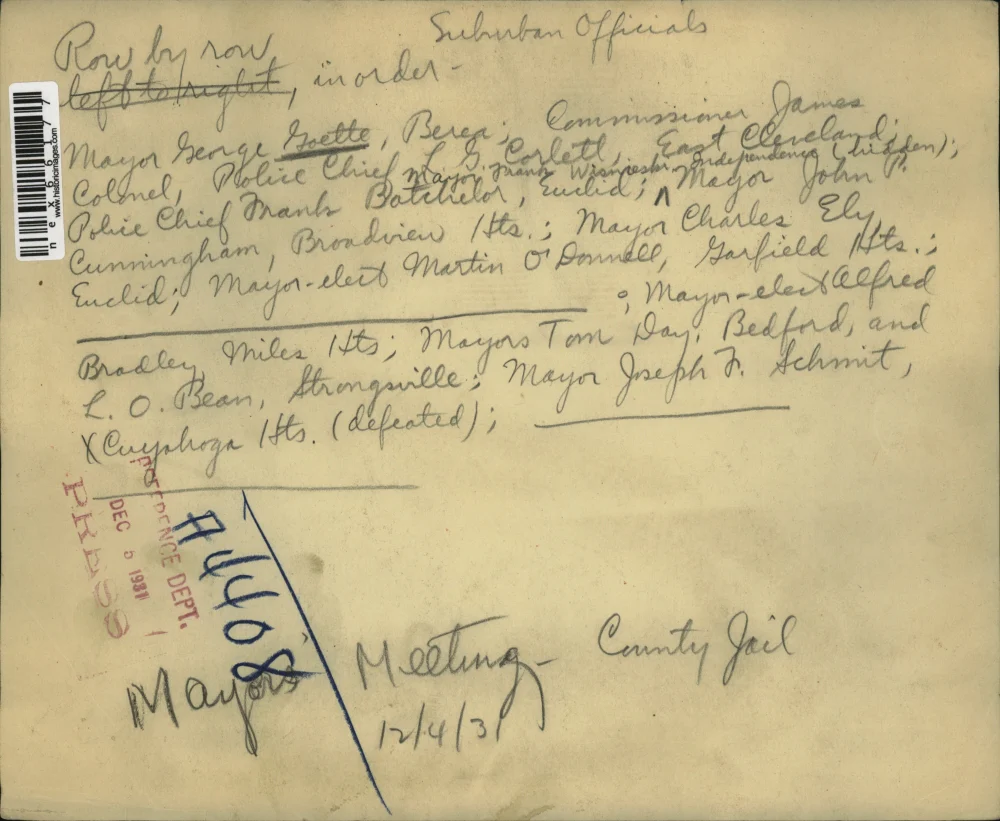 Suburban Officials
Row by row
left to right, in order -
Mayor George Goette, Berea; Commissioner James
Colonel, Police Chief L. G. Corlett, East Cleveland;
Mayor Frank Wisnieski Independence (hidden);
Police Chief Frank Batchelor, Euclid; ^ Mayor John P.
Cunningham, Broadview Hts.; Mayor Charles Ely,
Euclid; Mayor-elect Martin O'Donnell, Garfield Hts.;
; Mayor-elect Alfred
Bradley, Miles Hts; Mayors Tom Day, Bedford, and
L. O. Bean, Strongsville; Mayor Joseph F. Schmit,
X Cuyahoga Hts. (defeated);
REFERENCE DEPT.
DEC 5 1931
PRESS
A4408
Mayors' Meeting - County Jail
12/4/31
www.historicimages.com
nex66177